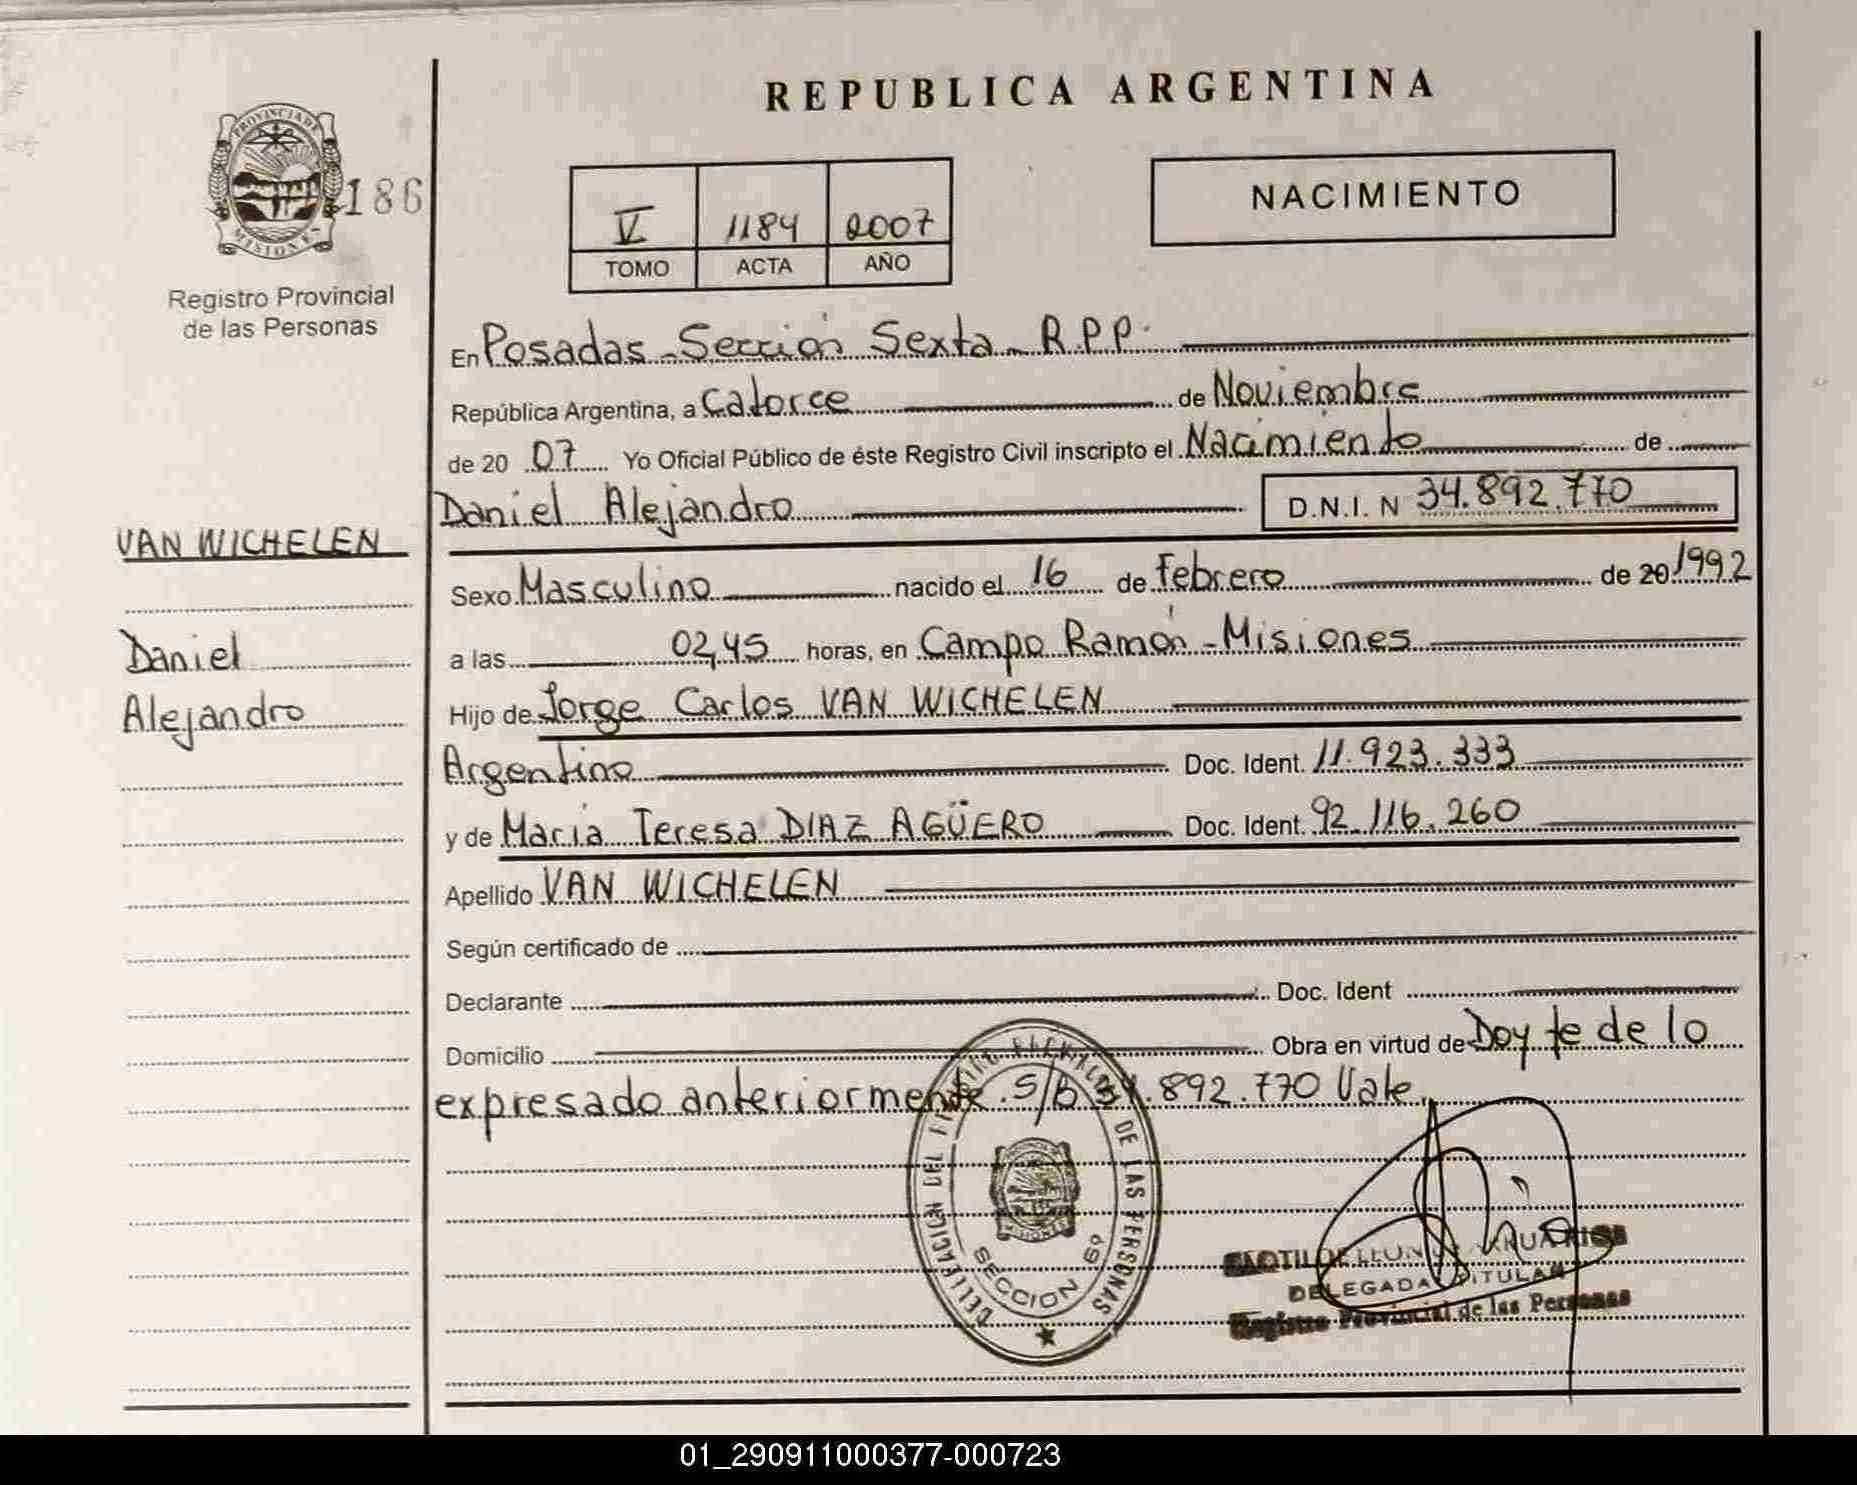 REPUBLICA ARGENTINA
PROVINCIA DE
MISIONES
186
Registro Provincial
de las Personas
V 1184 2007
TOMO ACTA AÑO
NACIMIENTO
En Posadas - Sección Sexta - R.P.P.
República Argentina, a Catorce de Noviembre
de 20 07 Yo Oficial Público de éste Registro Civil inscripto el Nacimiento de
Daniel Alejandro D.N.I. N 34.892.770
VAN WICHELEN
Daniel
Alejandro
Sexo Masculino nacido el 16 de Febrero de 20 1992
a las 02,45 horas, en Campo Ramón - Misiones
Hijo de Jorge Carlos VAN WICHELEN
Argentino Doc. Ident. 11.923.333
y de Maria Teresa DIAZ AGÜERO Doc. Ident. 92.116.260
Apellido VAN WICHELEN
Según certificado de
Declarante Doc. Ident
Domicilio Obra en virtud de Doy fe de lo
expresado anteriormente. S/B 34.892.770 Vale
DE LAS PERSONAS
SECCION 6º
MISIONES
DELEGADA TITULAR
Registro Provincial de las Personas
01_290911000377-000723